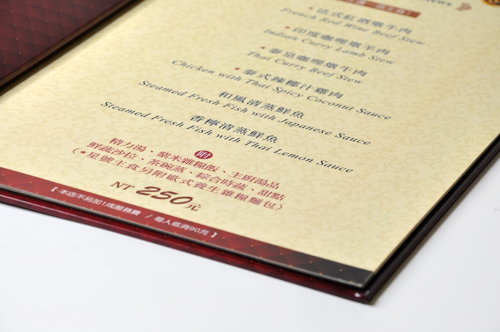 法式紅酒燉牛肉
French Red Wine Beef Stew
印度咖哩燉羊肉
Indian Curry Lamb Stew
泰皇咖哩燉牛肉
Thai Curry Beef Stew
泰式辣椰汁雞肉
Chicken with Thai Spicy Coconut Sauce
和風清蒸鮮魚
Steamed Fresh Fish with Japanese Sauce
香檸清蒸鮮魚
Steamed Fresh Fish with Thai Lemon Sauce
附
精力湯、紫米雜糧飯、主廚湯品
鮮蔬沙拉、茶碗蒸、綜合時蔬、甜點
(*星號主食另附歐式養生雜糧麵包)
NT 250元
【本店不另加1成服務費 / 每人低消90元】